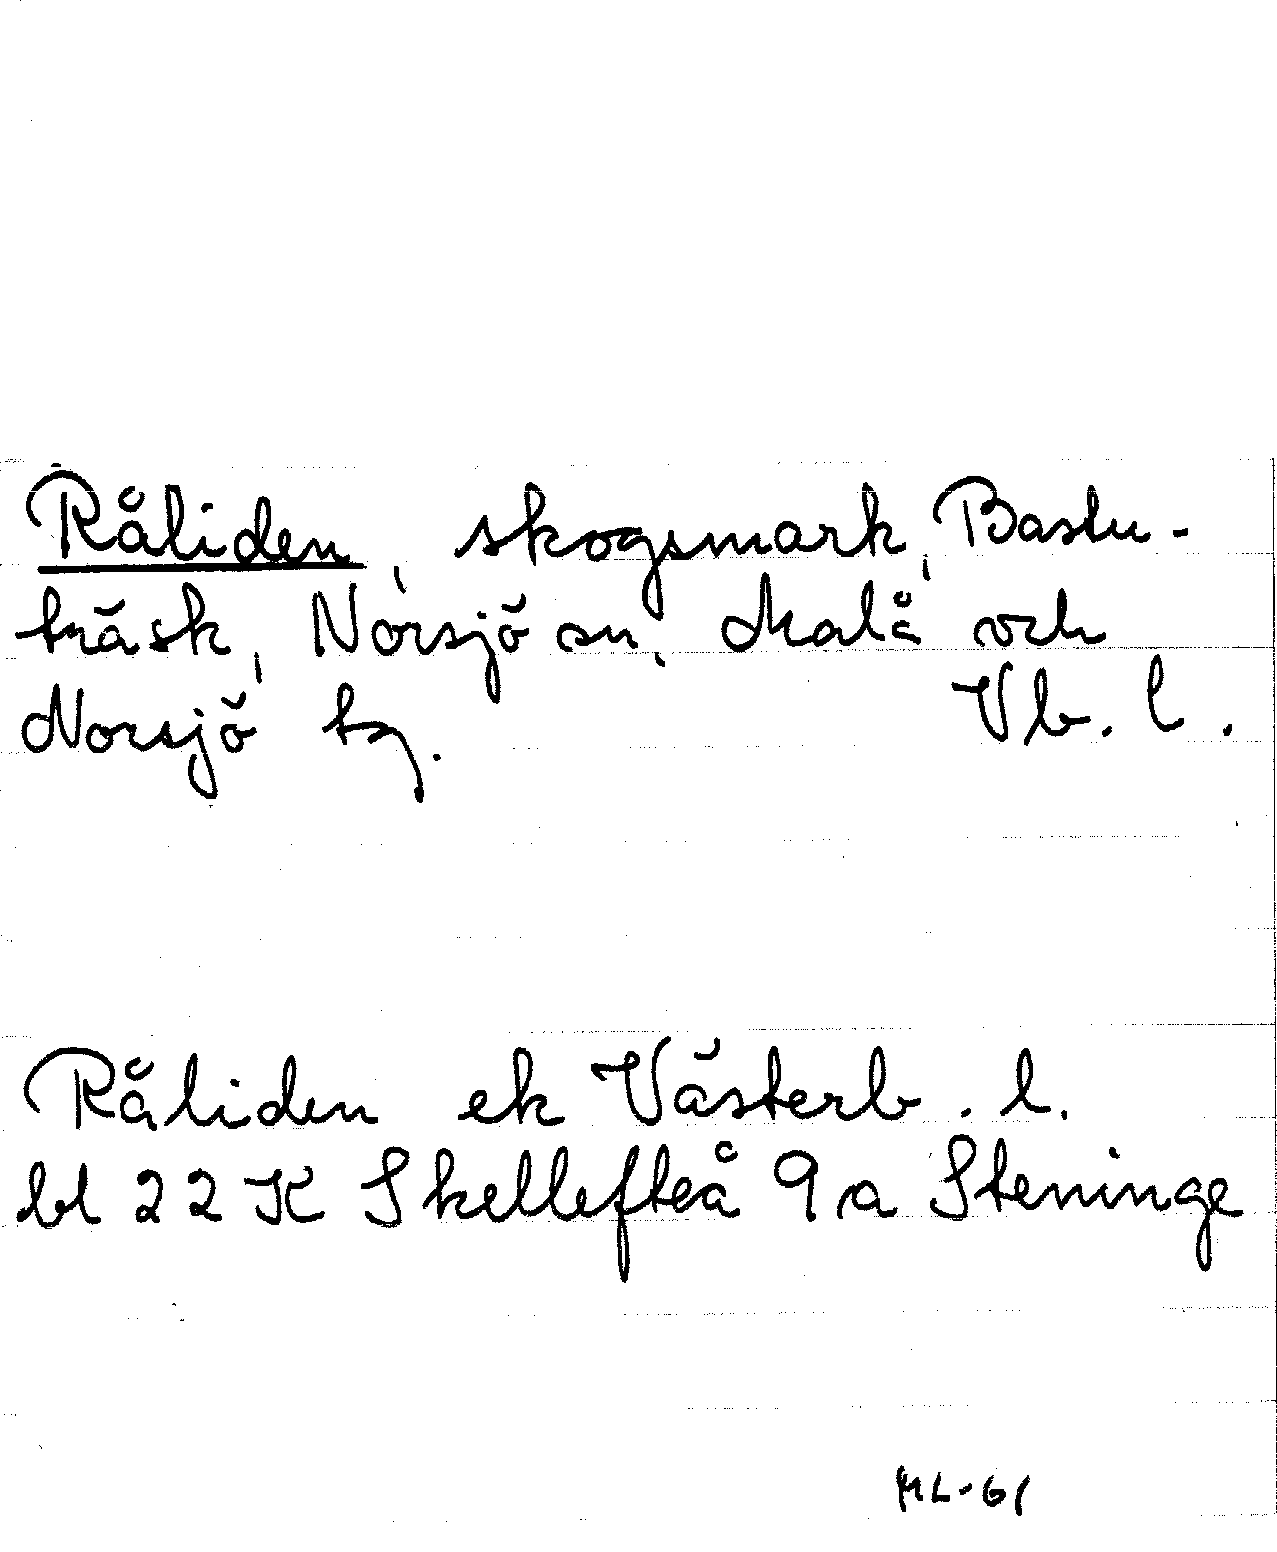 Råliden, skogsmark, Bastu-
träsk, Norsjö sn, Malå och
Norsjö tg. Vb. l.
Råliden ek Västerb. l.
bl 22 K Skellefteå 9 a Steninge
ML-61